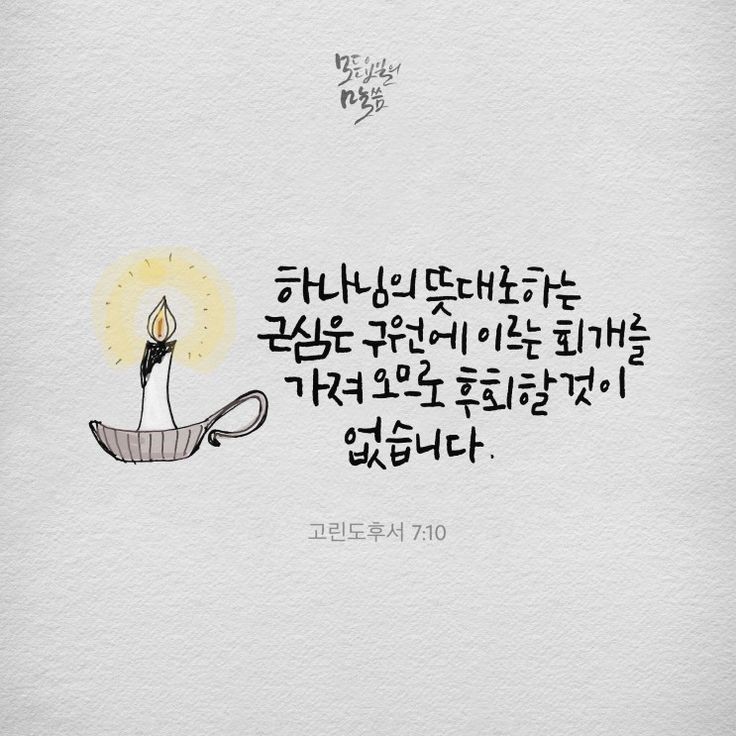 말씀
하나님의 뜻대로하는
근심은 구원에 이르는 회개를
가져오므로 후회할것이
없습니다.
고린도후서 7:10